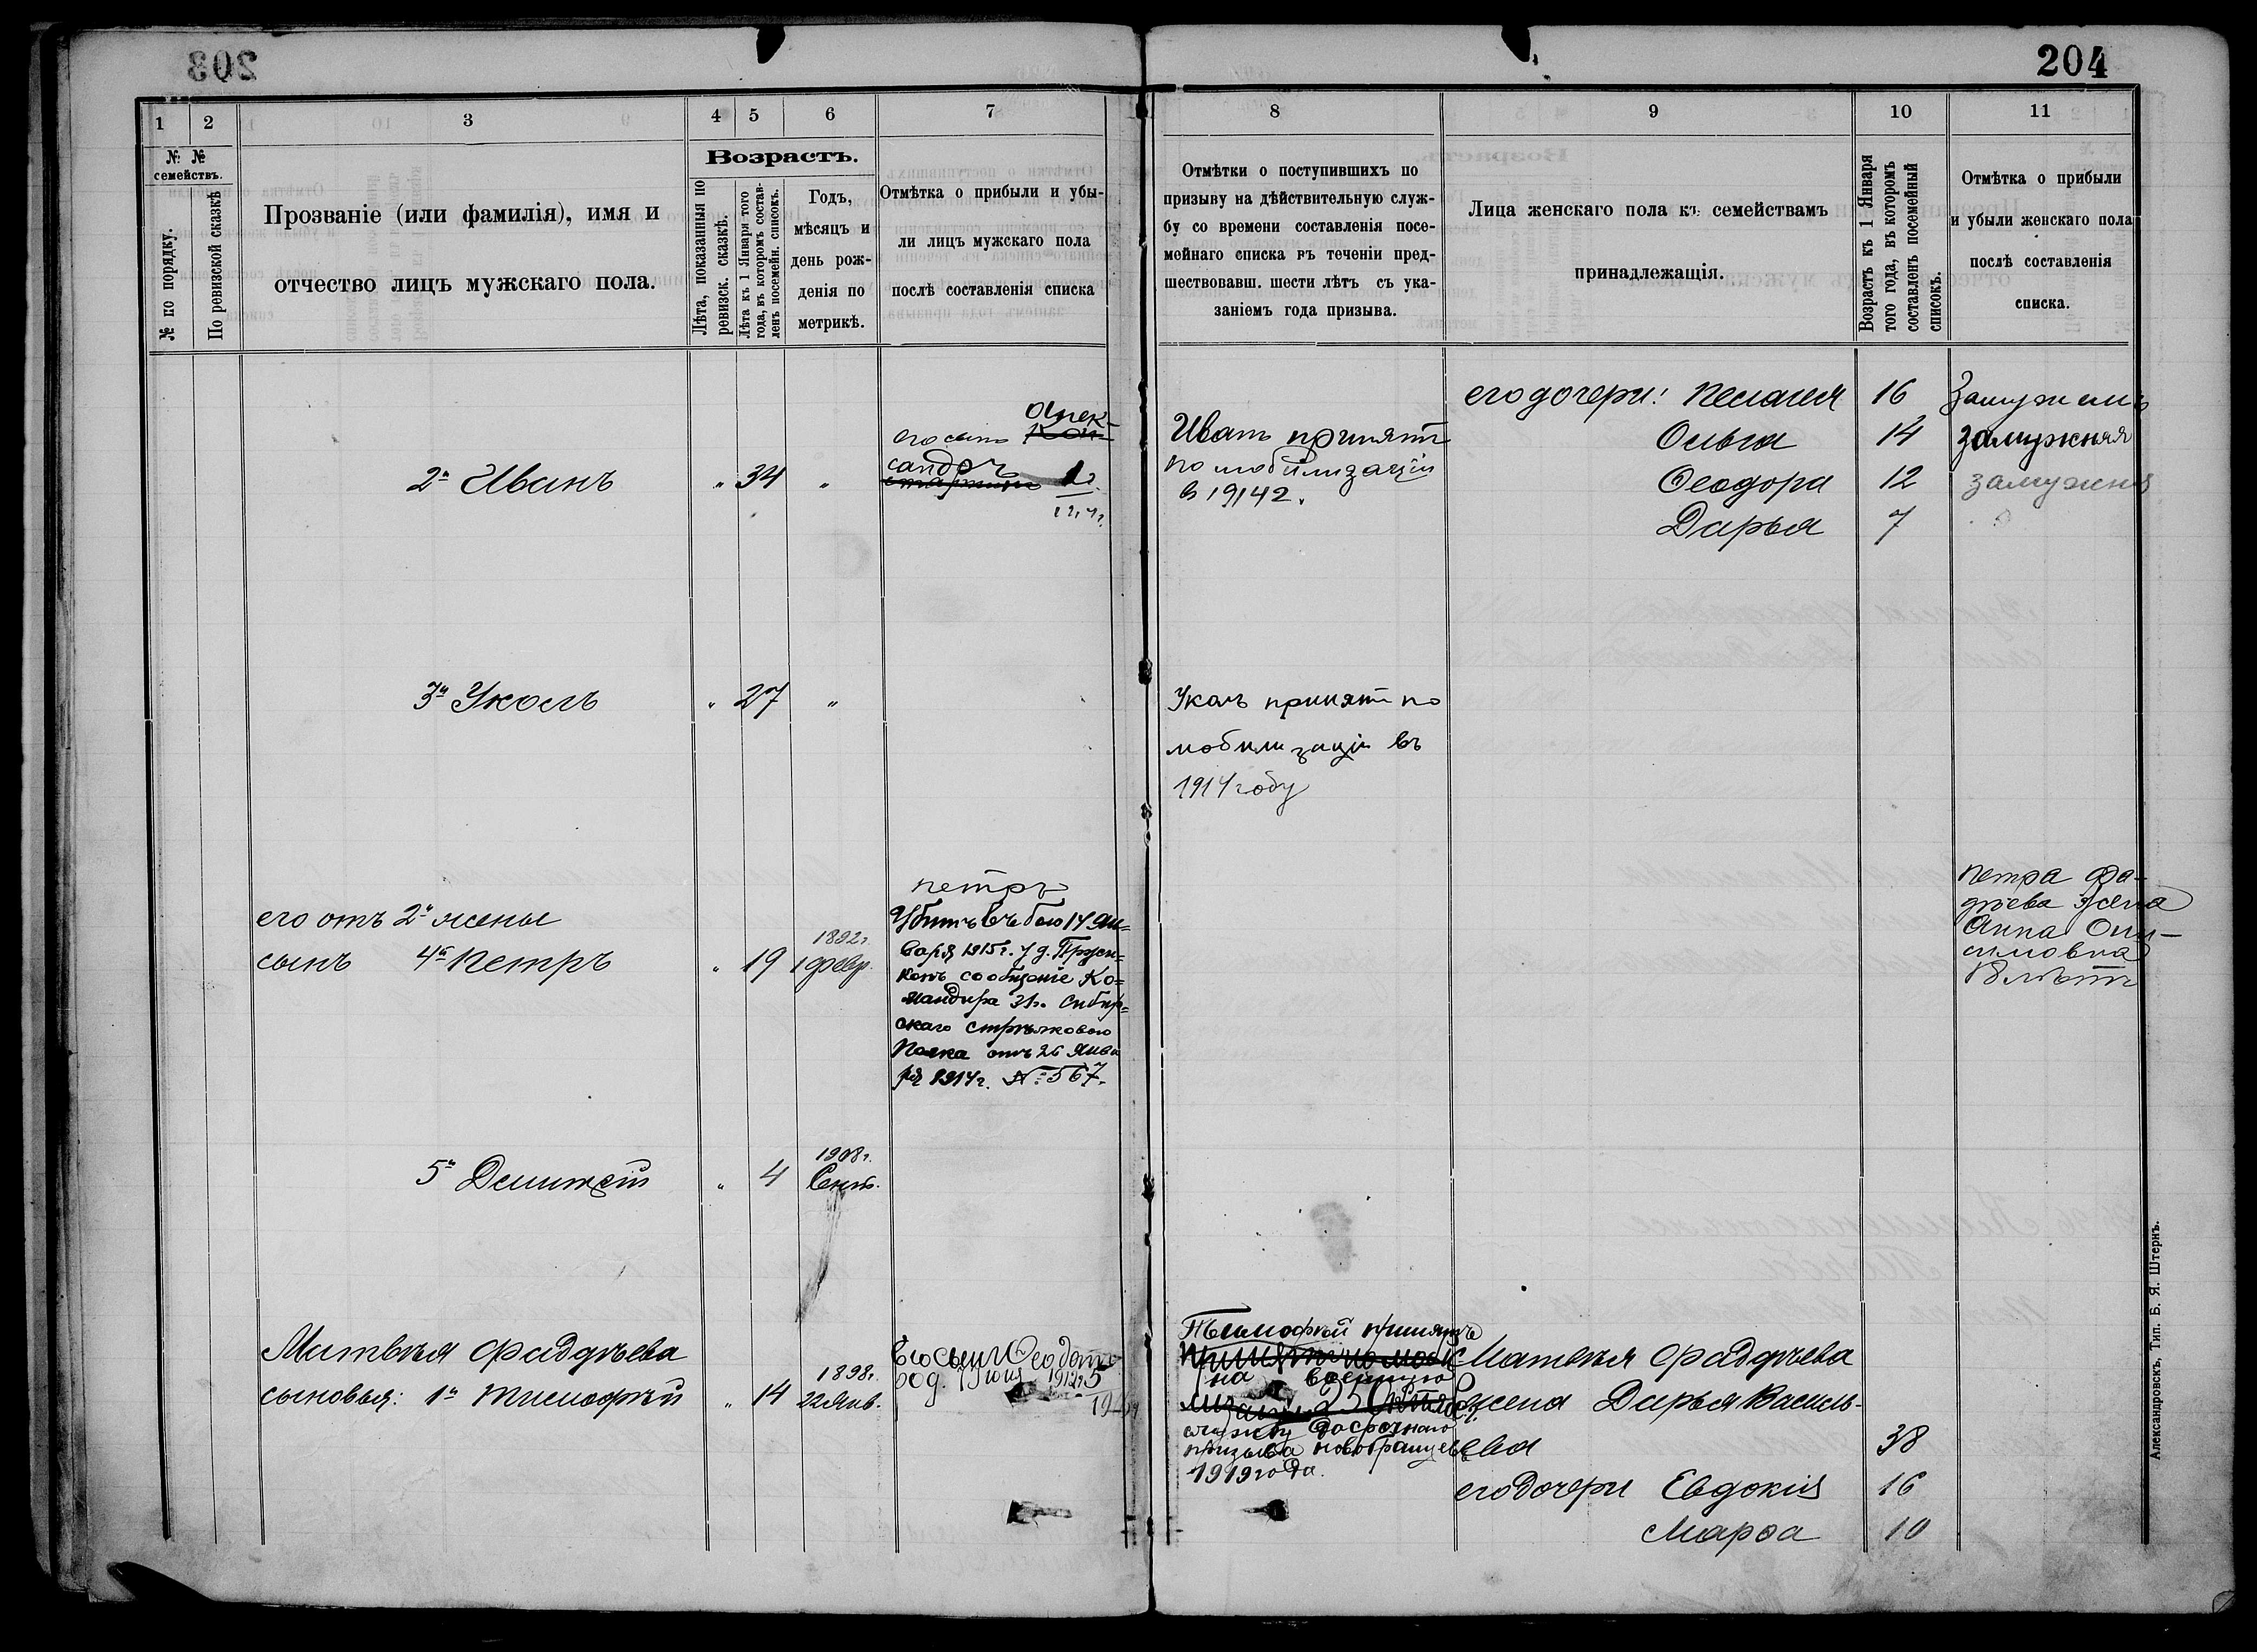 203
204
1 2 3 4 5 6 7
№ №
семействъ.
№ по порядку.
По ревизской сказкѣ
Прозваніе (или фамилія), имя и
отчество лицъ мужскаго пола.
Возрастъ.
Лѣта, показанныя по
ревизск. сказкѣ.
Лѣта къ 1 Января того
года, въ которомъ состав-
ленъ посемейн. списокъ.
Годъ,
мѣсяцъ и
день рож-
денія по
метрикѣ.
Отмѣтка о прибыли и убы-
ли лицъ мужскаго пола
послѣ составленія списка
2й Иванъ " 34 "
его сынъ Алек-
сандръ
3й Уколъ " 27 "
его отъ 2й жены
сынъ 4й Петръ " 19 1892г.
1 февр.
Петръ
Убитъ въ бою 14 Ян-
варя 1915г. у д.
комъ сообщеніе Ко-
мандира 31г. Сибир-
скаго стрѣлковаго
Полка отъ 26 Янва
ря 1914г. № 567.
5й " 4 1908г.
Сент.
Матвѣя Фаддѣева
сыновья: 1й Тимофѣй " 14 1898г.
22 Янв.
его сынъ Ѳеодотъ
род. 1912г.
8 9 10 11
Отмѣтки о поступившихъ по
призыву на дѣйствительную служ-
бу со времени составленія посе-
мейнаго списка въ теченіи пред-
шествовавш. шести лѣтъ съ ука-
заніемъ года призыва.
Лица женскаго пола къ семействамъ
принадлежащія.
Возрастъ къ 1 Января
того года, въ которомъ
составленъ посемейный
списокъ.
Отмѣтка о прибыли
и убыли женскаго пола
послѣ составленія
списка.
его дочери: Пелагея 16 Замужемъ
Ольга 14 замужняя
Ѳеодора 12 замужняя
Дарья 7
Иванъ принятъ
по мобилизаціи
в 1914 г.
Уколъ принятъ по
мобилизаціи въ
1914 году
Петра Фа-
дѣева жена
Анна Они-
симовна
18 лѣтъ
Тимофѣй принятъ
на военную
службу досрочнаго
призыва новобранцевъ
1919 года.
Матвѣя Фаддѣева
жена Дарья Василь-
ева 38
его дочери Евдокія 16
Марѳа 10
Александровскъ, Тип. Б. Я. Штернъ.